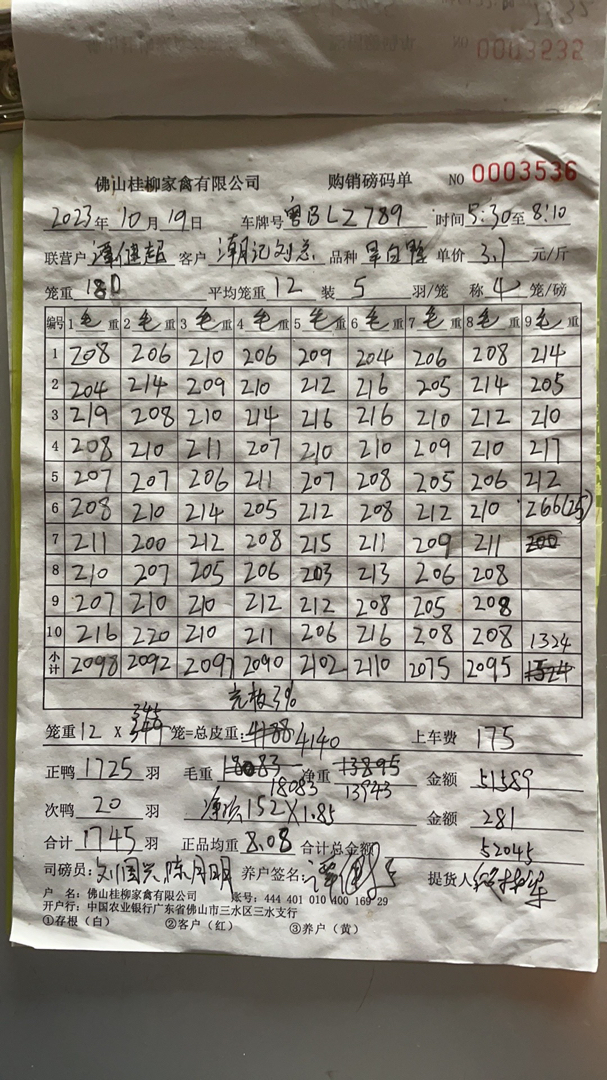 佛山桂柳家禽有限公司 购销磅码单 NO 0003536
2023年10月19日 车牌号 粤BLZ789 时间5:30至8:10
联营户 谭健超 客户 潮记刘总 品种 单价 3.7 元/斤
笼重 180 平均笼重 12 装 5 羽/笼 称 4 笼/磅
编号 1 毛重 2 毛重 3 毛重 4 毛重 5 毛重 6 毛重 7 毛重 8 毛重 9 毛重
1 208 206 210 206 209 204 206 208 214
2 204 214 209 210 212 216 205 214 205
3 219 208 210 214 216 216 210 212 210
4 208 210 211 207 210 210 209 210 217
5 207 207 206 211 207 208 205 206 212
6 208 210 214 205 212 208 212 210 266(25)
7 211 200 212 208 215 211 209 211 200
8 210 207 205 206 203 213 206 208
9 207 210 210 212 212 208 205 208
10 216 220 210 211 206 216 208 208 1324
小计 2098 2092 2097 2090 2102 2110 2075 2095 1524
3%
345
笼重 12 X 349 笼=总皮重: 4188 4140 上车费 175
正鸭 1725 羽 毛重 18083 净重 13895 金额 51589
18083 13943
次鸭 20 羽 净次152X1.85 金额 281
合计 1745 羽 正品均重 8.08 合计总金额 52045
司磅员: 刘国兴 陈月明 养户签名: 提货人
户 名: 佛山桂柳家禽有限公司 账号: 444 401 010 400 169 29
开户行: 中国农业银行广东省佛山市三水区三水支行
①存根（白） ②客户（红） ③养户（黄）